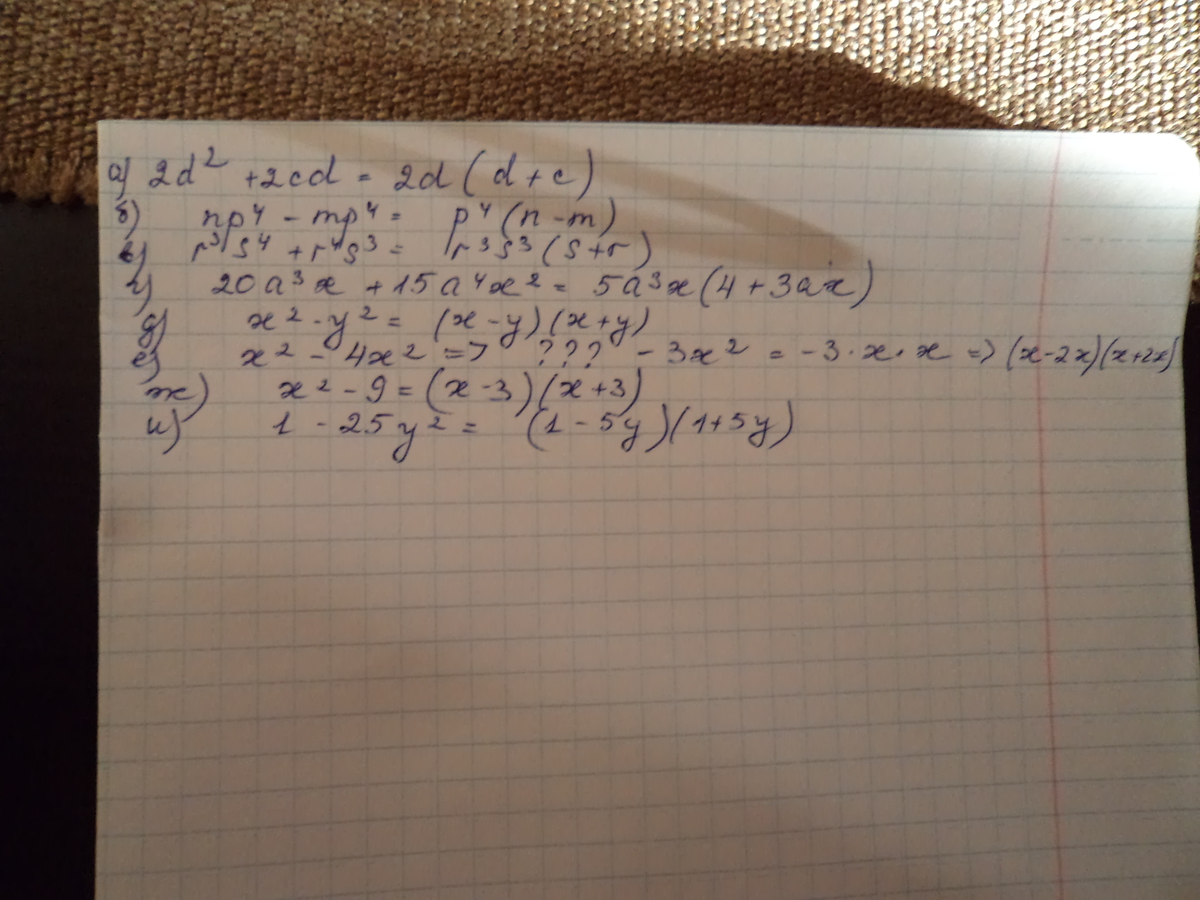 а) 2d² + 2cd = 2d (d + c)
б) np⁴ - mp⁴ = p⁴ (n - m)
в) r³s⁴ + r⁴s³ = r³s³ (s + r)
г) 20a³x + 15a⁴x² = 5a³x (4 + 3ax)
д) x² - y² = (x - y) (x + y)
е) x² - 4x² => ??? - 3x² = -3 · x · x => (x - 2x) (x + 2x)
ж) x² - 9 = (x - 3) (x + 3)
и) 1 - 25y² = (1 - 5y) (1 + 5y)